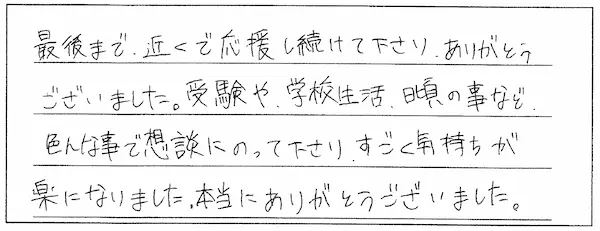 最後まで、近くで応援し続けて下さり、ありがとう
ございました。受験や、学校生活、日頃の事など、
色んな事で想談にのって下さり、すごく気持ちが
楽になりました。本当にありがとうございました。